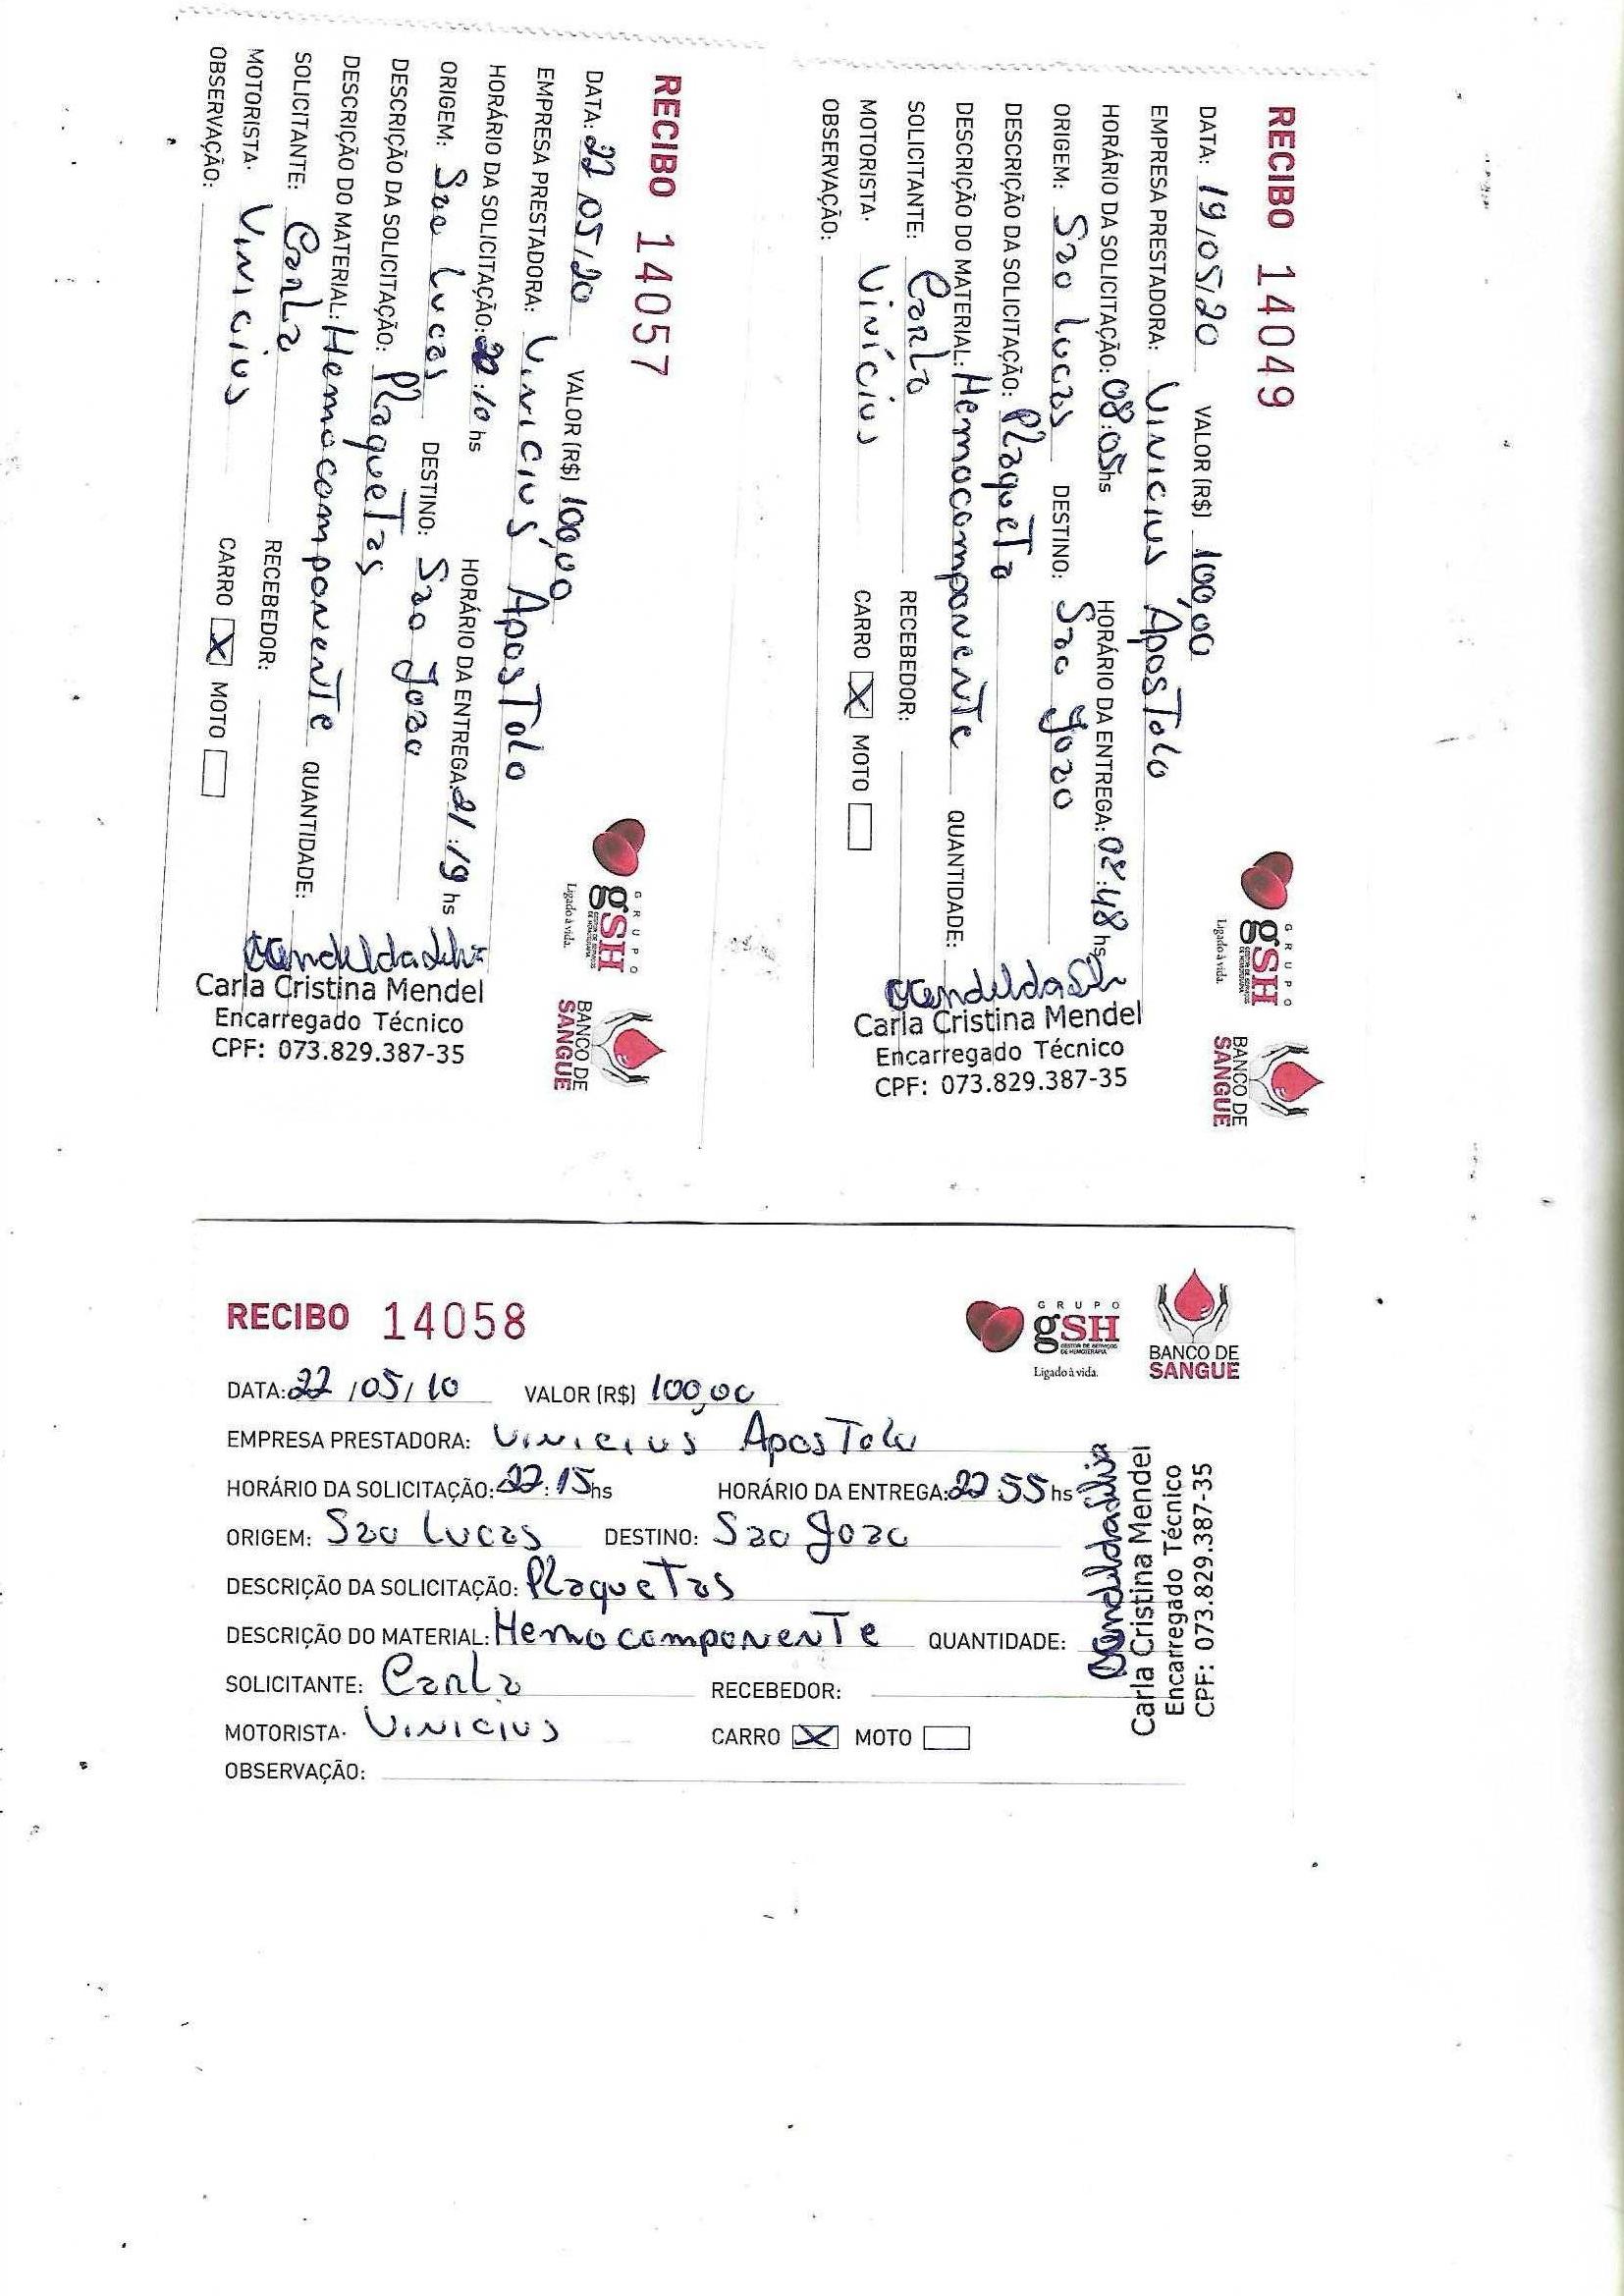 RECIBO 14057
GRUPO
gSH
GESTOR DE SERVIÇOS
DE HEMOTERAPIA
Ligado à vida.
BANCO DE
SANGUE
DATA: 22/05/20 VALOR (R$) 100,00
EMPRESA PRESTADORA: Vinicius Apostolo
HORÁRIO DA SOLICITAÇÃO: 20:10 hs HORÁRIO DA ENTREGA: 21:19 hs
ORIGEM: Sao Lucas DESTINO: Sao Joao
DESCRIÇÃO DA SOLICITAÇÃO: Plaquetas
DESCRIÇÃO DO MATERIAL: Hemocomponente QUANTIDADE:
SOLICITANTE: Carla RECEBEDOR:
MOTORISTA. Vinicius CARRO X MOTO
OBSERVAÇÃO:
Carla Cristina Mendel
Encarregado Técnico
CPF: 073.829.387-35
RECIBO 14049
GRUPO
gSH
GESTOR DE SERVIÇOS
DE HEMOTERAPIA
Ligado à vida.
BANCO DE
SANGUE
DATA: 19/05/20 VALOR (R$) 100,00
EMPRESA PRESTADORA: Vinicius Apostolo
HORÁRIO DA SOLICITAÇÃO: 08:05 hs HORÁRIO DA ENTREGA: 08:48 hs
ORIGEM: Sao Lucas DESTINO: Sao Joao
DESCRIÇÃO DA SOLICITAÇÃO: Plaqueta
DESCRIÇÃO DO MATERIAL: Hemocomponente QUANTIDADE:
SOLICITANTE: Carla RECEBEDOR:
MOTORISTA. Vinícius CARRO X MOTO
OBSERVAÇÃO:
Carla Cristina Mendel
Encarregado Técnico
CPF: 073.829.387-35
RECIBO 14058
GRUPO
gSH
GESTOR DE SERVIÇOS
DE HEMOTERAPIA
Ligado à vida.
BANCO DE
SANGUE
DATA: 22/05/10 VALOR (R$) 100,00
EMPRESA PRESTADORA: Vinicius Apostolo
HORÁRIO DA SOLICITAÇÃO: 22:15 hs HORÁRIO DA ENTREGA: 22:55 hs
ORIGEM: Sao Lucas DESTINO: Sao Joao
DESCRIÇÃO DA SOLICITAÇÃO: Plaquetas
DESCRIÇÃO DO MATERIAL: Hemocomponente QUANTIDADE:
SOLICITANTE: Carla RECEBEDOR:
MOTORISTA. Vinicius CARRO X MOTO
OBSERVAÇÃO:
Carla Cristina Mendel
Encarregado Técnico
CPF: 073.829.387-35